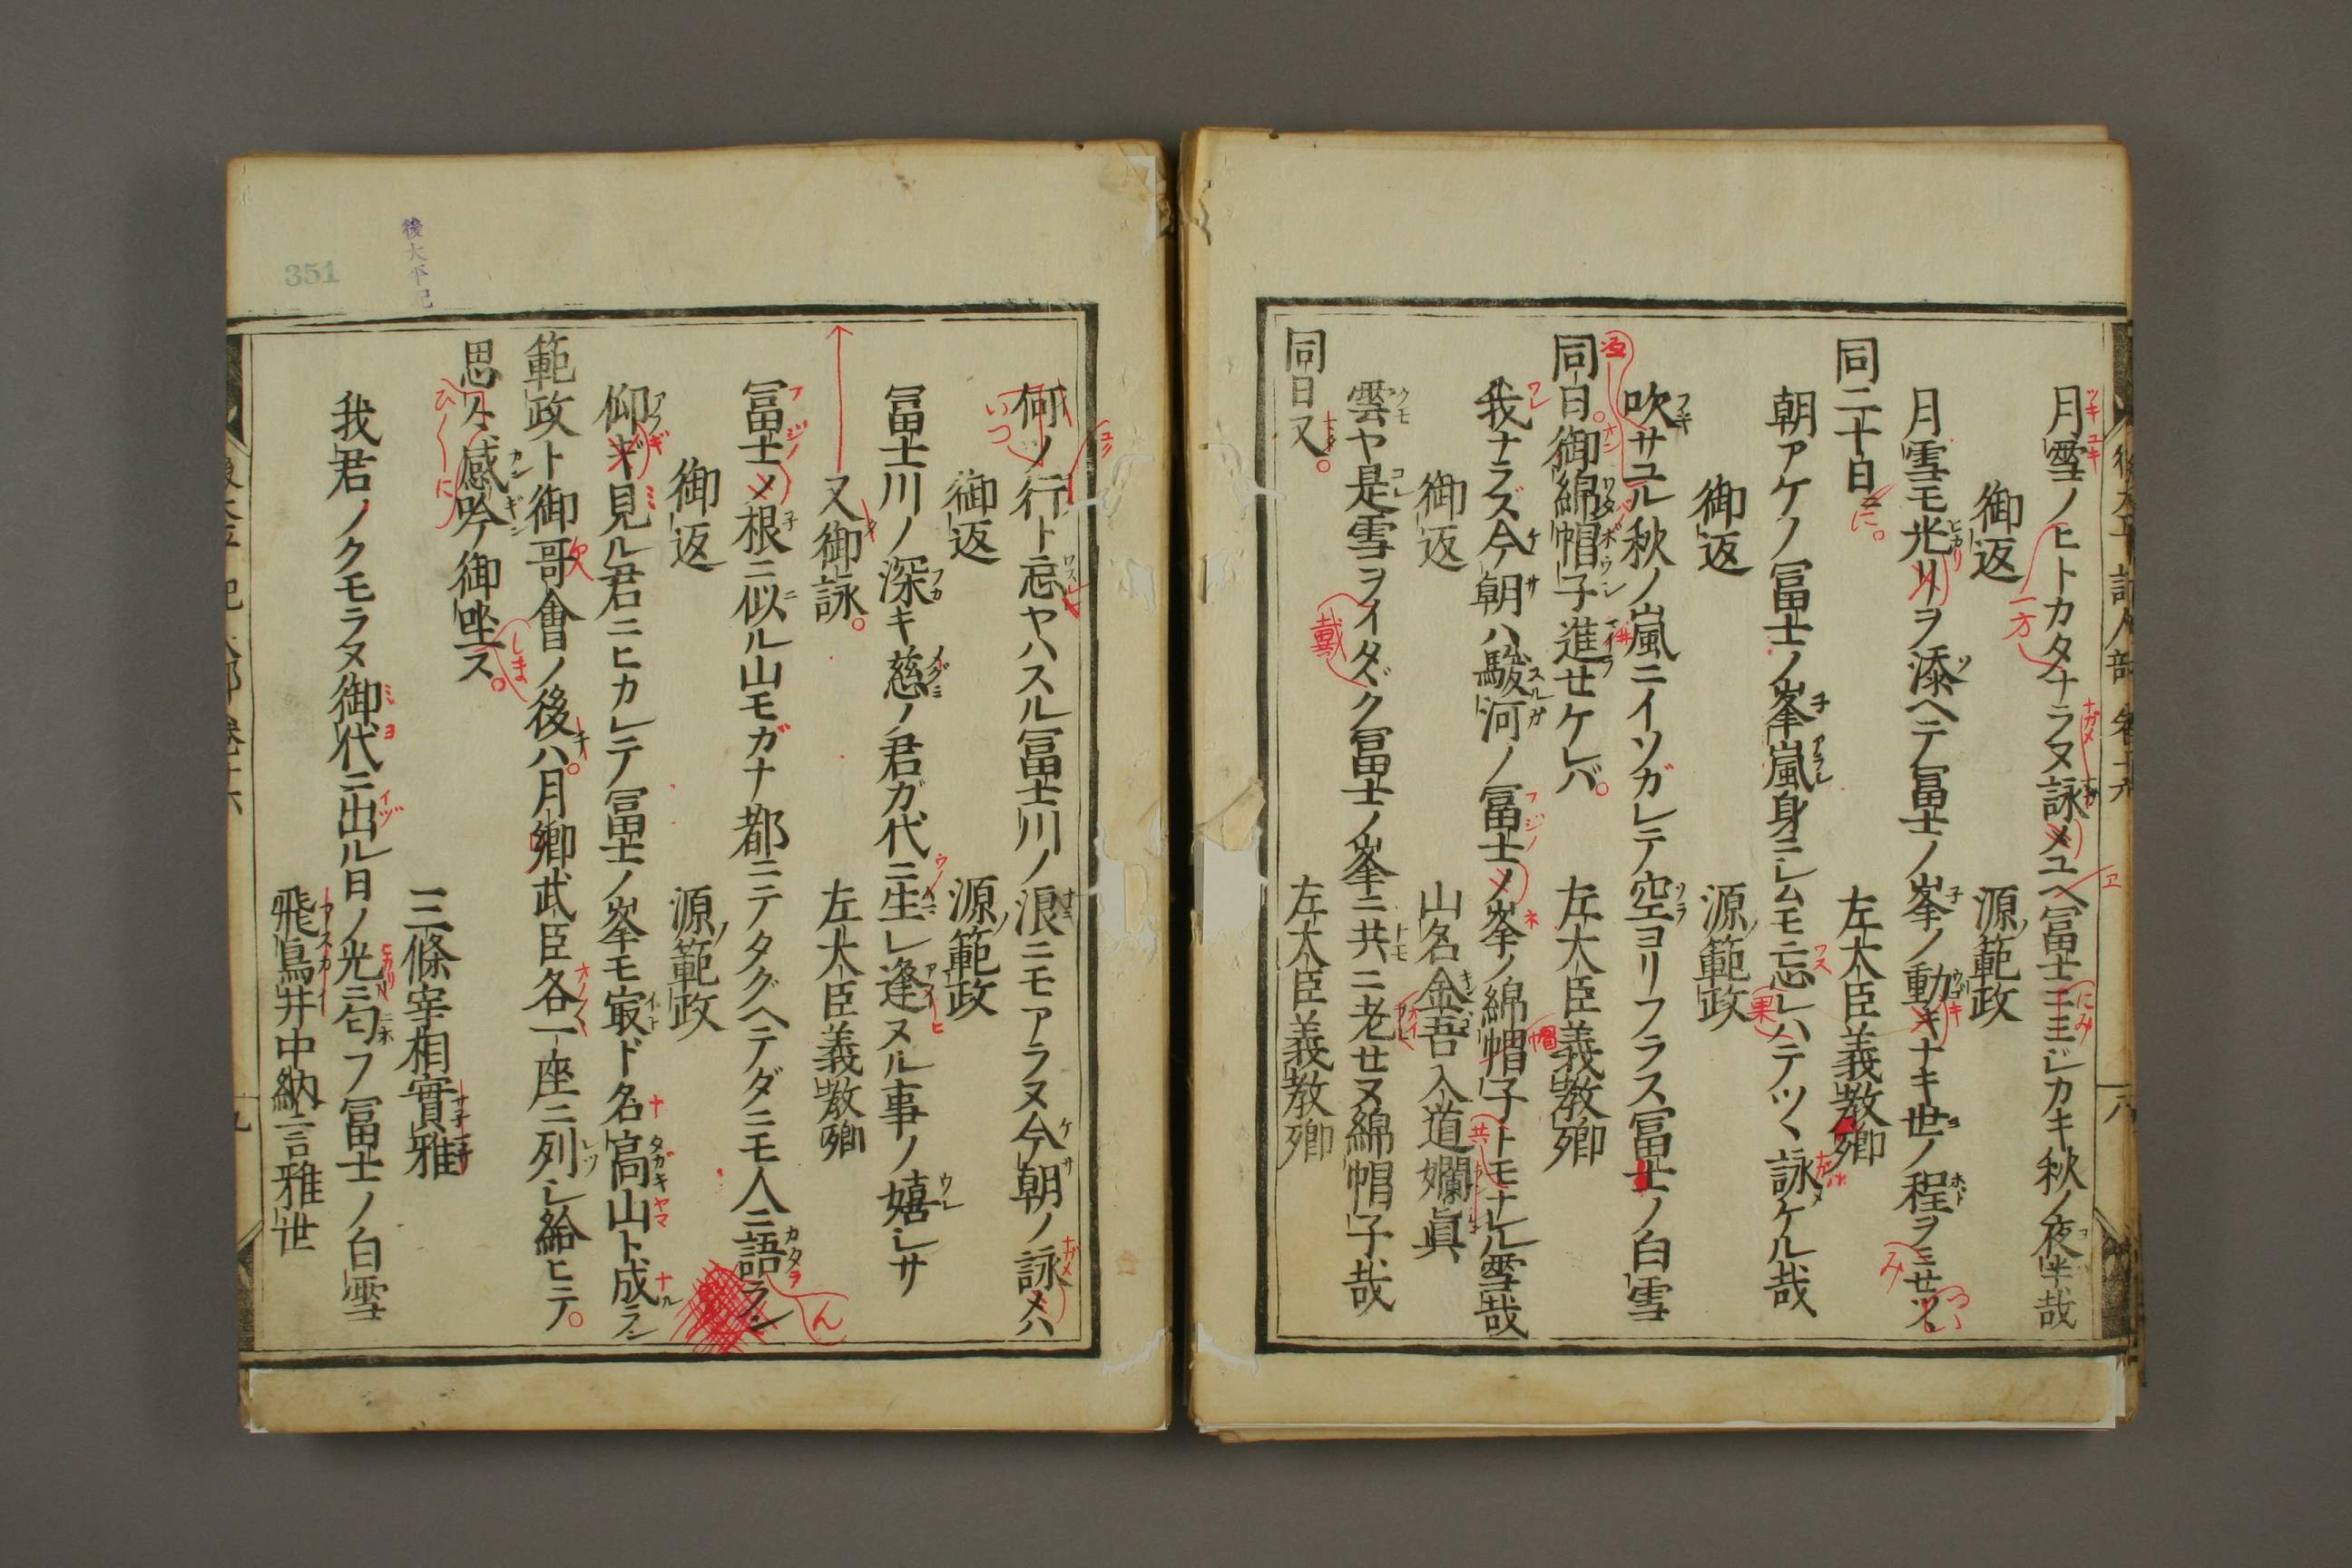 月雪ノヒトカタナラヌ詠メユヘ冨士ニミジカキ秋ノ夜半哉
御返 源範政
月雪モ光リヲ添ヘテ冨士ノ峯ノ動キナキ世ノ程ヲミセツヽ
同二十日ニ 左大臣義教卿
朝アケノ冨士ノ峯嵐身ニシムモ忘レハテツヽ詠ケル哉
御返 源範政
吹サユル秋ノ嵐ニイソガレテ空ヨリフラス冨士ノ白雪
同日御綿帽子進セケレバ 左大臣義教卿
我ナラズ今朝ハ駿河ノ冨士ノ峯ノ綿帽子トモナレル雪哉
御返 山名金吾入道嫻眞
雲ヤ是雪ヲイタダク冨士ノ峯ニ共ニ老セヌ綿帽子哉
同日又 左大臣義教卿
何ノ行ト忘ヤハスル冨士川ノ浪ニモアラヌ今朝ノ詠メハ
御返 源範政
冨士川ノ深キ慈ノ君ガ代ニ生レ逢ヌル事ノ嬉シサ
又御詠 左大臣義教卿
冨士ノ根ニ似ル山モガナ都ニテタグヘテダニモ人ニ語ラン
御返 源範政
仰ギ見ル君ニヒカレテ冨士ノ峯モ㝡ド名高山ト成ラン
範政ト御哥會ノ後ハ月卿武臣各一座ニ列シ給ヒテ
思々感吟御坐ス
三條宰相實雅
我君ノクモラヌ御代ニ出ル日ノ光ニ匂フ冨士ノ白雪
飛鳥井中納言雅世
後太平記
351